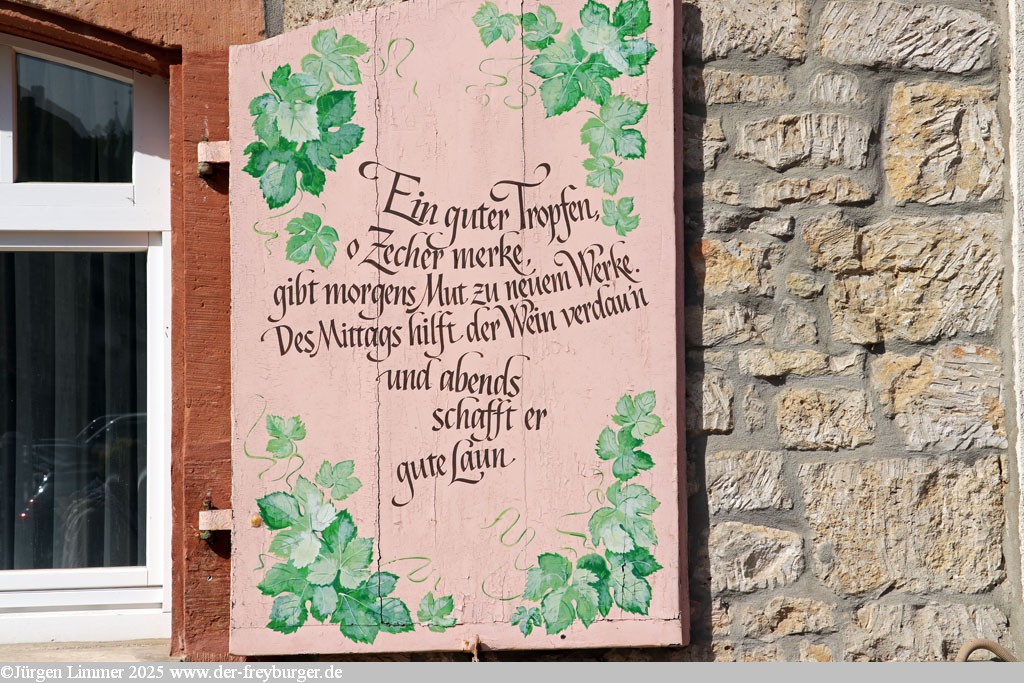 Ein guter Tropfen,
o Zecher merke,
gibt morgens Mut zu neuem Werke.
Des Mittags hilft der Wein verdau'n
und abends
schafft er
gute Laun
©Jürgen Limmer 2025 www.der-freyburger.de